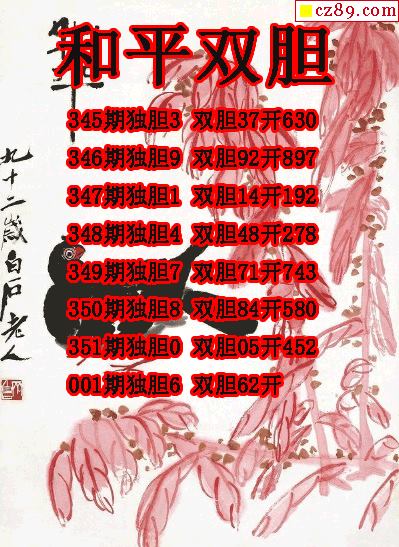 cz89.com
和平双胆
345期独胆3 双胆37开630
346期独胆9 双胆92开897
347期独胆1 双胆14开192
348期独胆4 双胆48开278
349期独胆7 双胆71开743
350期独胆8 双胆84开580
351期独胆0 双胆05开452
001期独胆6 双胆62开
九十二岁白石老人